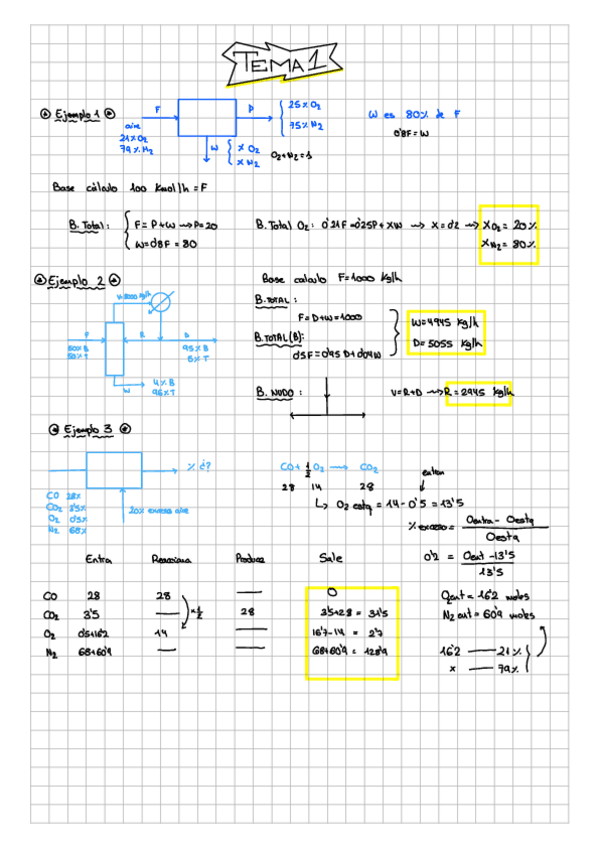 TEMA 1
Ejemplo 1
F
P
25% O2
75% N2
aire
21% O2
79% N2
W
X O2
X N2
O2+N2=1
W es 80% de F
0'8F=W
Base cálculo 100 Kmol/h = F
B. Total:
F = P+W → P=20
W=0'8F = 80
B. Total O2: 0'21F=0'25P+XW → X=0'2 → XO2= 20%
XN2= 80%
Ejemplo 2
V=8000 kg/h
F
R
D
50% B
50% T
95% B
5% T
W
4% B
96% T
Base calculo F=1000 kg/h
B. TOTAL:
F=D+W=1000
B. TOTAL (B):
0'5F=0'95D+0'04W
W=4945 kg/h
D=5055 kg/h
B. NUDO:
V=R+D → R=2945 kg/h
Ejemplo 3
% d?
CO 28%
CO2 3'5%
O2 0'5%
N2 68%
20% exceso aire
CO + 1/2 O2 → CO2
28 14 28
O2 esta = 14-0'5 = 13'5
% exceso = (Oentra - Oesta) / Oesta
0'2 = (Oent - 13'5) / 13'5
Entra Reacciona Produce Sale
CO 28 28 — 0
CO2 3'5 — 28 3'5+28 = 31'5
O2 0'5+16'2 14 — 16'7-14 = 2'7
N2 68+60'9 — — 68+60'9 = 128'9
x 1/2
Oent = 16'2 moles
N2 ent = 60'9 moles
16'2 — 21%
x — 79%